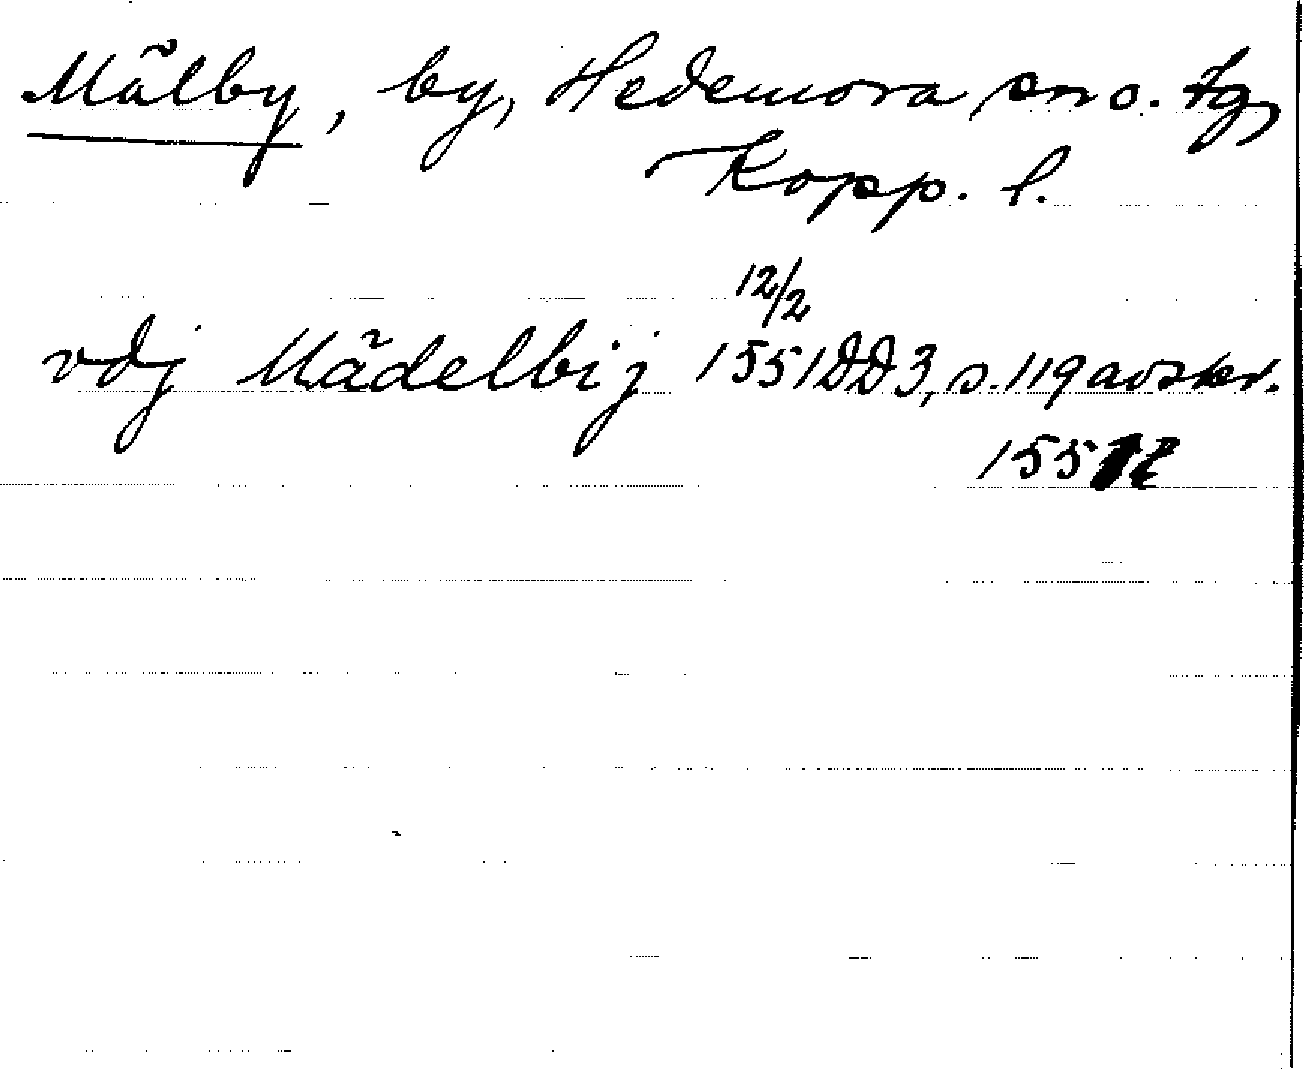 Mälby, by, Hedemora sn o. tg,
Kopp. l.
12/2
vdj Mädelbij 1551 DD3, s. 119 avskr.